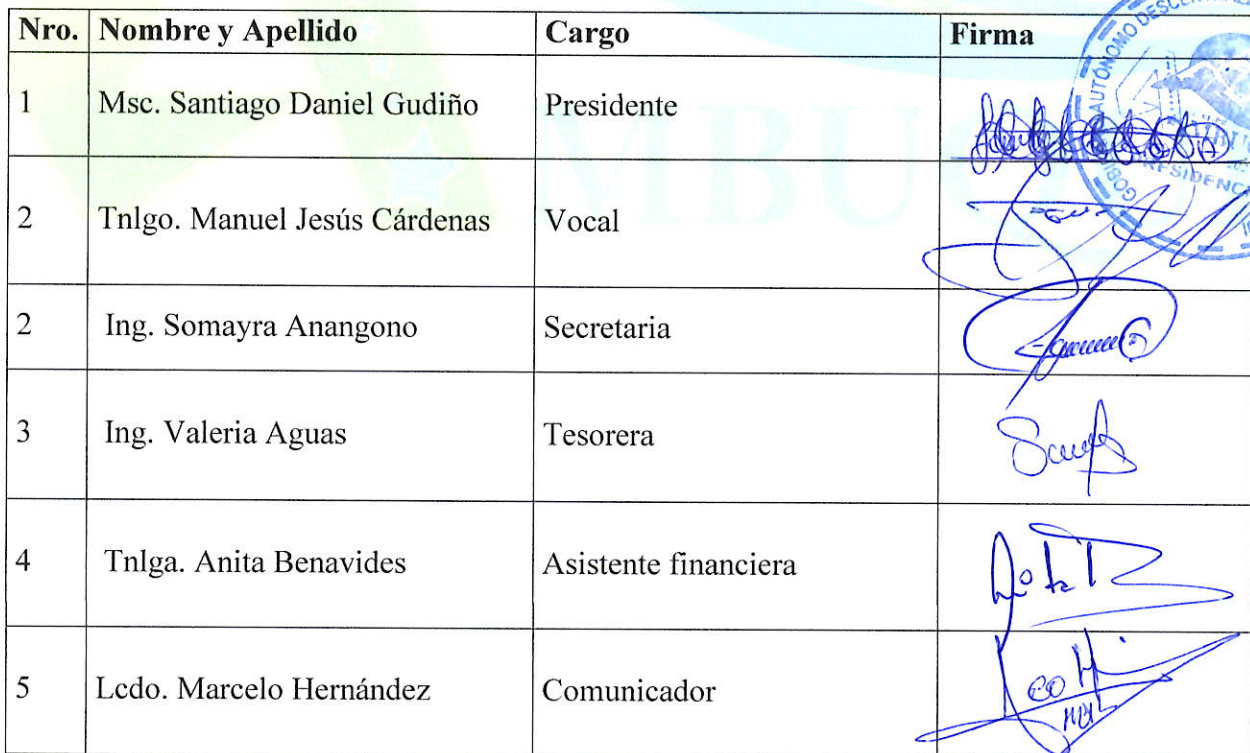 Nro. Nombre y Apellido Cargo Firma
1 Msc. Santiago Daniel Gudiño Presidente
2 Tnlgo. Manuel Jesús Cárdenas Vocal
2 Ing. Somayra Anangono Secretaria
3 Ing. Valeria Aguas Tesorera
4 Tnlga. Anita Benavides Asistente financiera
5 Lcdo. Marcelo Hernández Comunicador
AUTÓNOMO
MBU